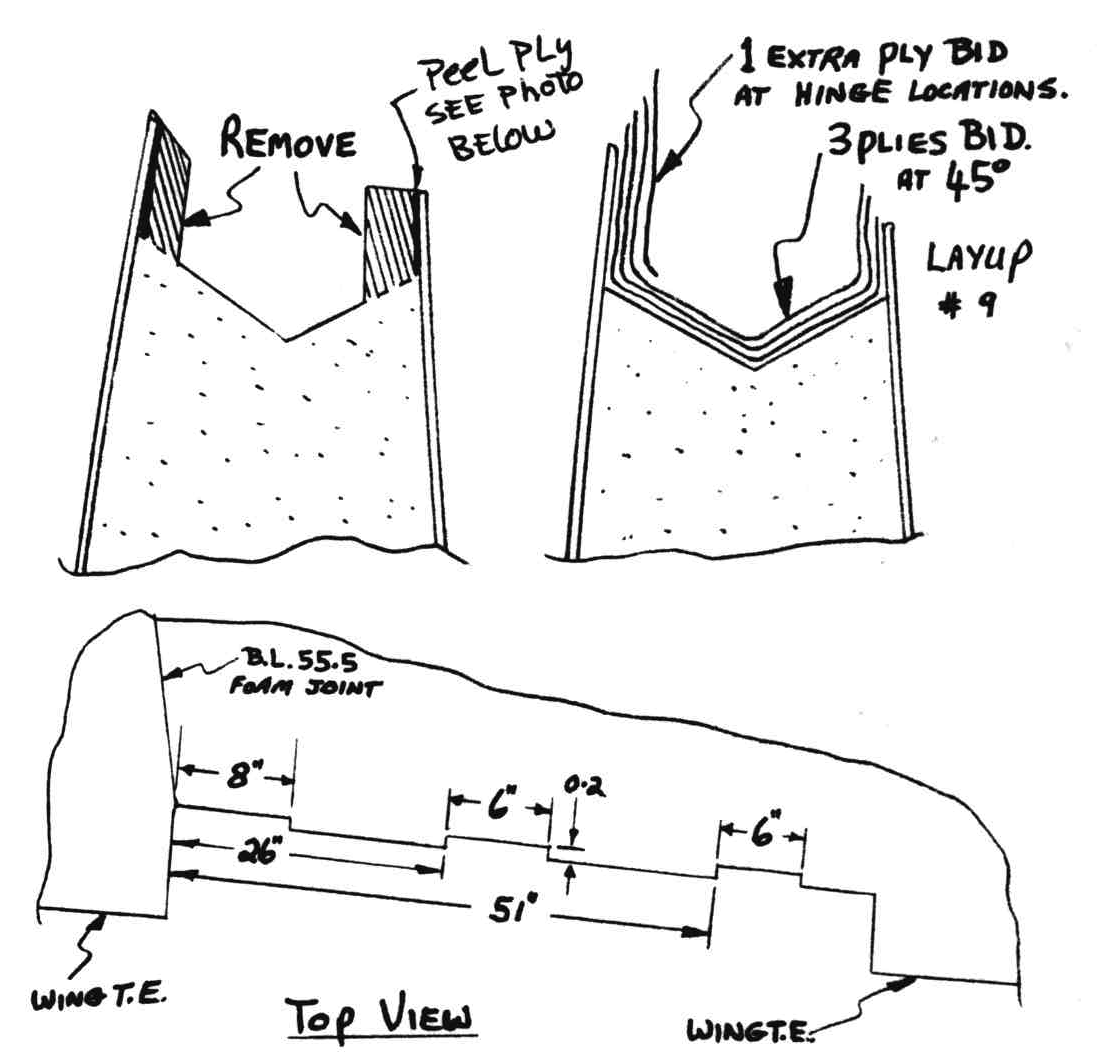 PEEL PLY
SEE PHOTO
BELOW
REMOVE
1 EXTRA PLY BID
AT HINGE LOCATIONS.
3 PLIES BID.
AT 45°
LAYUP
# 9
B.L. 55.5
FOAM JOINT
8"
6"
0.2
6"
26"
51"
WING T.E.
TOP VIEW
WING T.E.